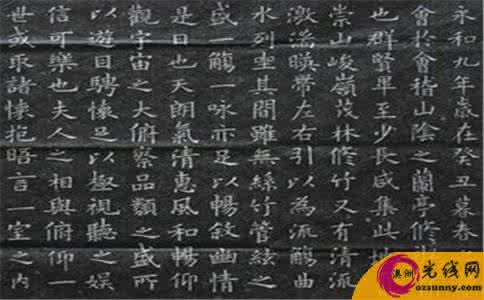 永和九年歲在癸丑暮春
會於會稽山陰之蘭亭修
也群賢畢至少長咸集此
崇山峻嶺茂林修竹又有清流
激湍暎帶左右引以為流觴曲
水列坐其間雖無絲竹管絃之
盛一觴一咏亦足以暢敘幽情
是日也天朗氣清惠風和暢仰
觀宇宙之大俯察品類之盛所
以遊目騁懷足以極視聽之娛
信可樂也夫人之相與俯仰一
世或取諸懷抱晤言一室之內
澳洲光线网
ozsunny.com